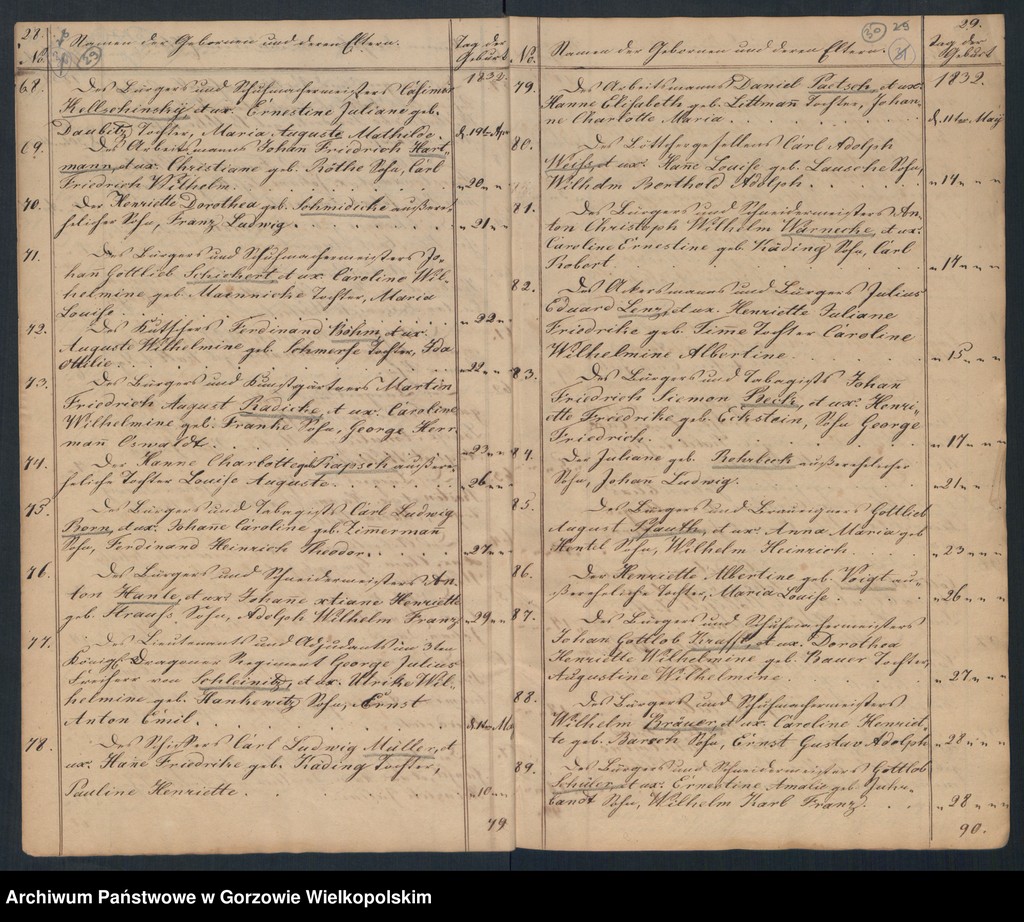 28.
29
No. Namen der Gebornen und deren Eltern. Tag der
Geburt
1832.
68. Des Bürgers und Schuhmachermeisters Casimir
Kellschinsky, et ux: Ernestine Juliane geb.
Daubitz Tochter, Maria Auguste Mathilde. d. 19ten Apr
69. Des Arbeitsmanns Johan Friedrich Hart-
mann, et ux: Christiane geb. Röthe Sohn, Carl
Friedrich Wilhelm. " 20 " "
70. Der Henriette Dorothea geb. Schmidicke außere
helicher Sohn, Franz Ludwig. " 21 " "
71. Des Bürgers und Schuhmachermeisters Jo-
hañ Gottlieb Schickert et ux: Caroline Wil-
helmine geb. Mainnicke Tochter, Maria
Louise. " 22 " "
72. Des Kutschers Ferdinand Böhm, et ux:
Auguste Wilhelmine geb. Schmerse Tochter, Ida
Ottilie. " 22 " "
73. Des Bürgers und Kunstgärtners Martin
Friedrich August Radicke, et ux: Caroline
Wilhelmine geb. Franke Sohn, George Herr
mañ Oswaldt. " 23 " "
74. Der Hanne Charlotte geb. Rapsch außere-
heliche Tochter Louise Auguste. " 26 " "
75. Des Bürgers und Tabagists Carl Ludwig
Born, et ux: Johañe Caroline geb. Zimermañ
Sohn, Ferdinand Heinrich Theodor. " 27 " "
76. Des Bürgers und Schneidermeisters An-
ton Hanle, et ux: Johañe xtiane Henriette
geb. Strauß Sohn, Adolph Wilhelm Franz " 29 " "
77. Des Lieutenants und Adjudants im 3ten
Königl. Dragoner Regiment George Julius
Freiherr von Schleinitz, et ux: Ulrike Wil-
helmine geb. Hankewitz Sohn, Ernst
Anton Emil. d. 1ten May
78. Des Schiffers Carl Ludwig Müller, et
ux: Hañe Friedrike geb. Kading Tochter,
Pauline Henriette. " 10 " "
79
30 29
31
29.
No. Namen der Gebornen und deren Eltern. Tag der
Geburt
1832.
79. Des Arbeitsmanns Daniel Paetsch, et ux:
Hanne Elisabeth geb. Littmañ Tochter, Johan-
ne Charlotte Maria. d. 11ten May
80. Des Carl Adolph
Weiß, et ux: Hañe Louise geb. Lausche Sohn,
Wilhelm Berthold Adolph. " 14 " "
81. Des Bürgers und Schneidermeisters An-
ton Christoph Wilhelm Warnecke, et ux:
Caroline Ernestine geb Kading Sohn, Carl
Robert. " 14 " "
82. Des Ackersmanns und Bürgers Julius
Eduard Lenz, et ux: Henriette Juliane
Friedrike geb. Time Tochter Caroline
Wilhelmine Albertine. " 15 " "
83. Des Bürgers und Tabagists Johan
Friedrich Siemon Beck, et ux: Henri-
ette Friedrike geb. Eckstein, Sohn George
Friedrich. " 17 " "
84. Der Juliane geb. Rohrbeck außerehelicher
Sohn, Johan Ludwig. " 21 " "
85. Des Bürgers und Braueigners Gottlieb
August Pfauth, et ux: Anna Maria geb
Hentel Sohn, Wilhelm Heinrich. " 23 " "
86. Der Henriette Albertine geb. Voigt au-
ßereheliche Tochter, Maria Louise. " 26 " "
87. Des Bürgers und Schuhmachermeisters
Johan Gottlob Krafft, et ux: Dorothea
Henriette Wilhelmine geb. Bauer Tochter,
Augustine Wilhelmine. " 27 " "
88. Des Bürgers und Schuhmachermeisters
Wilhelm Bräuer, et ux: Caroline Henriet-
te geb. Barsch Sohn, Ernst Gustav Adolph " 28 " "
89. Des Bürgers und Schneidermeisters Gottlob
Schüler, et ux: Ernestine Amalie geb
Sohn, Wilhelm Karl Franz. " 28 " "
90.
Archiwum Państwowe w Gorzowie Wielkopolskim